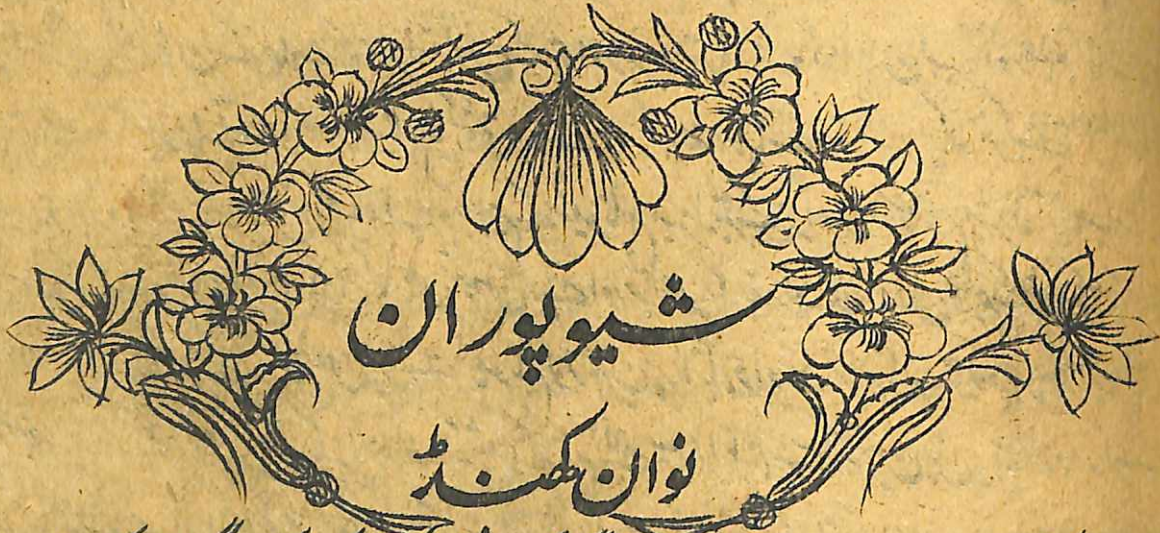 شیو پوران
نوان کھنڈ